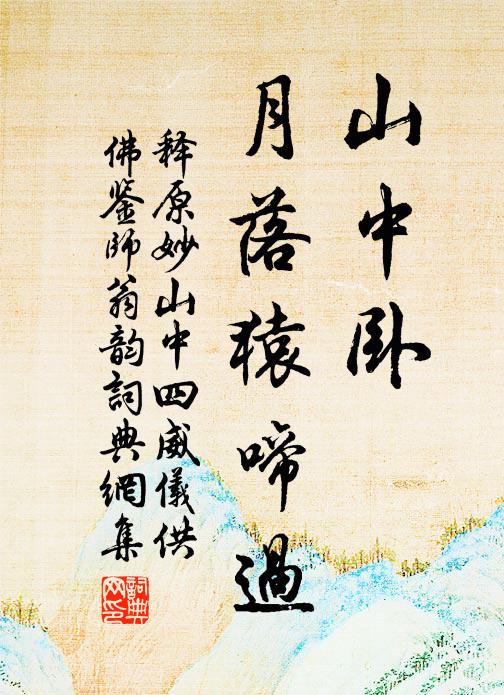 山中卧
月落猿啼過
释原妙山中四威儀供
佛鉴師翁韵詞典網集
詞典网印